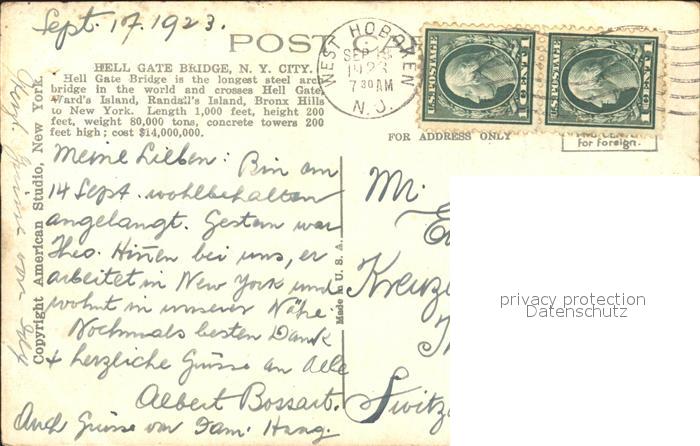 Sept. 17. 1923.
POST CA
HELL GATE BRIDGE, N. Y. CITY.
Hell Gate Bridge is the longest steel arch
bridge in the world and crosses Hell Gate,
Ward's Island, Randall's Island, Bronx Hills
to New York. Length 1,000 feet, height 200
feet, weight 80,000 tons, concrete towers 200
feet high; cost $14,000,000.
WEST HOBOKEN
SEP 18
1923
7 30 AM
N. J.
U.S. POSTAGE
1 CENT 1
U.S. POSTAGE
1 CENT 1
FOR ADDRESS ONLY
for foreign.
Copyright American Studio, New York.
Made in U. S. A.
Meine Lieben: Bin am
14 Sept. wohlbehalten
angelangt. Gestern war
Theo. bei uns, er
arbeitet in New York und
wohnt in unserer Nähe.
Nochmals besten Dank
+ herzliche Grüsse an Alle
Albert Bossart.
Auch Grüsse von Fam. Haug.
Mr.
Kreuz
Switz
privacy protection
Datenschutz